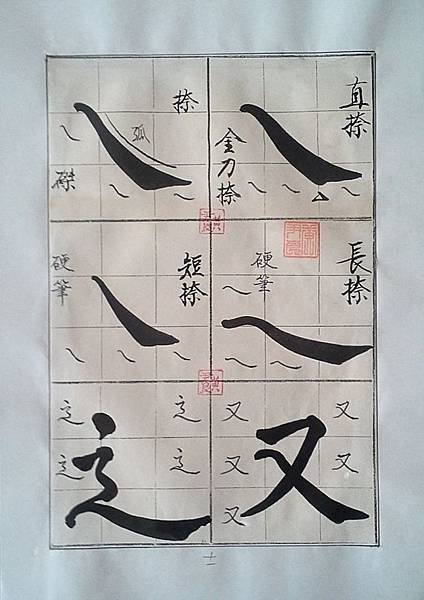 直捺
金刀捺
捺
弧
磔
長捺
硬筆
短捺
硬筆
又
又
又
又
又
又
之
之
之
之
之
十一